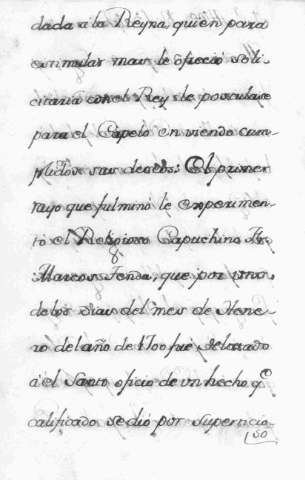 dada a la Reyna, quien para
estimular mas le ofrecio soli
citaria con el Rey le postulase
para el Capelo en viendo cum-
plidos sus deseos: El primer
rayo que fulminó le experimen-
tó el Religioso Capuchino Fr.
Marcos Tenda, que por uno
de los dias del mes de Hene-
ro del año de 1700 fue delatado
á el Santo oficio de vn hecho q.e
calificado se dió por supersticio-